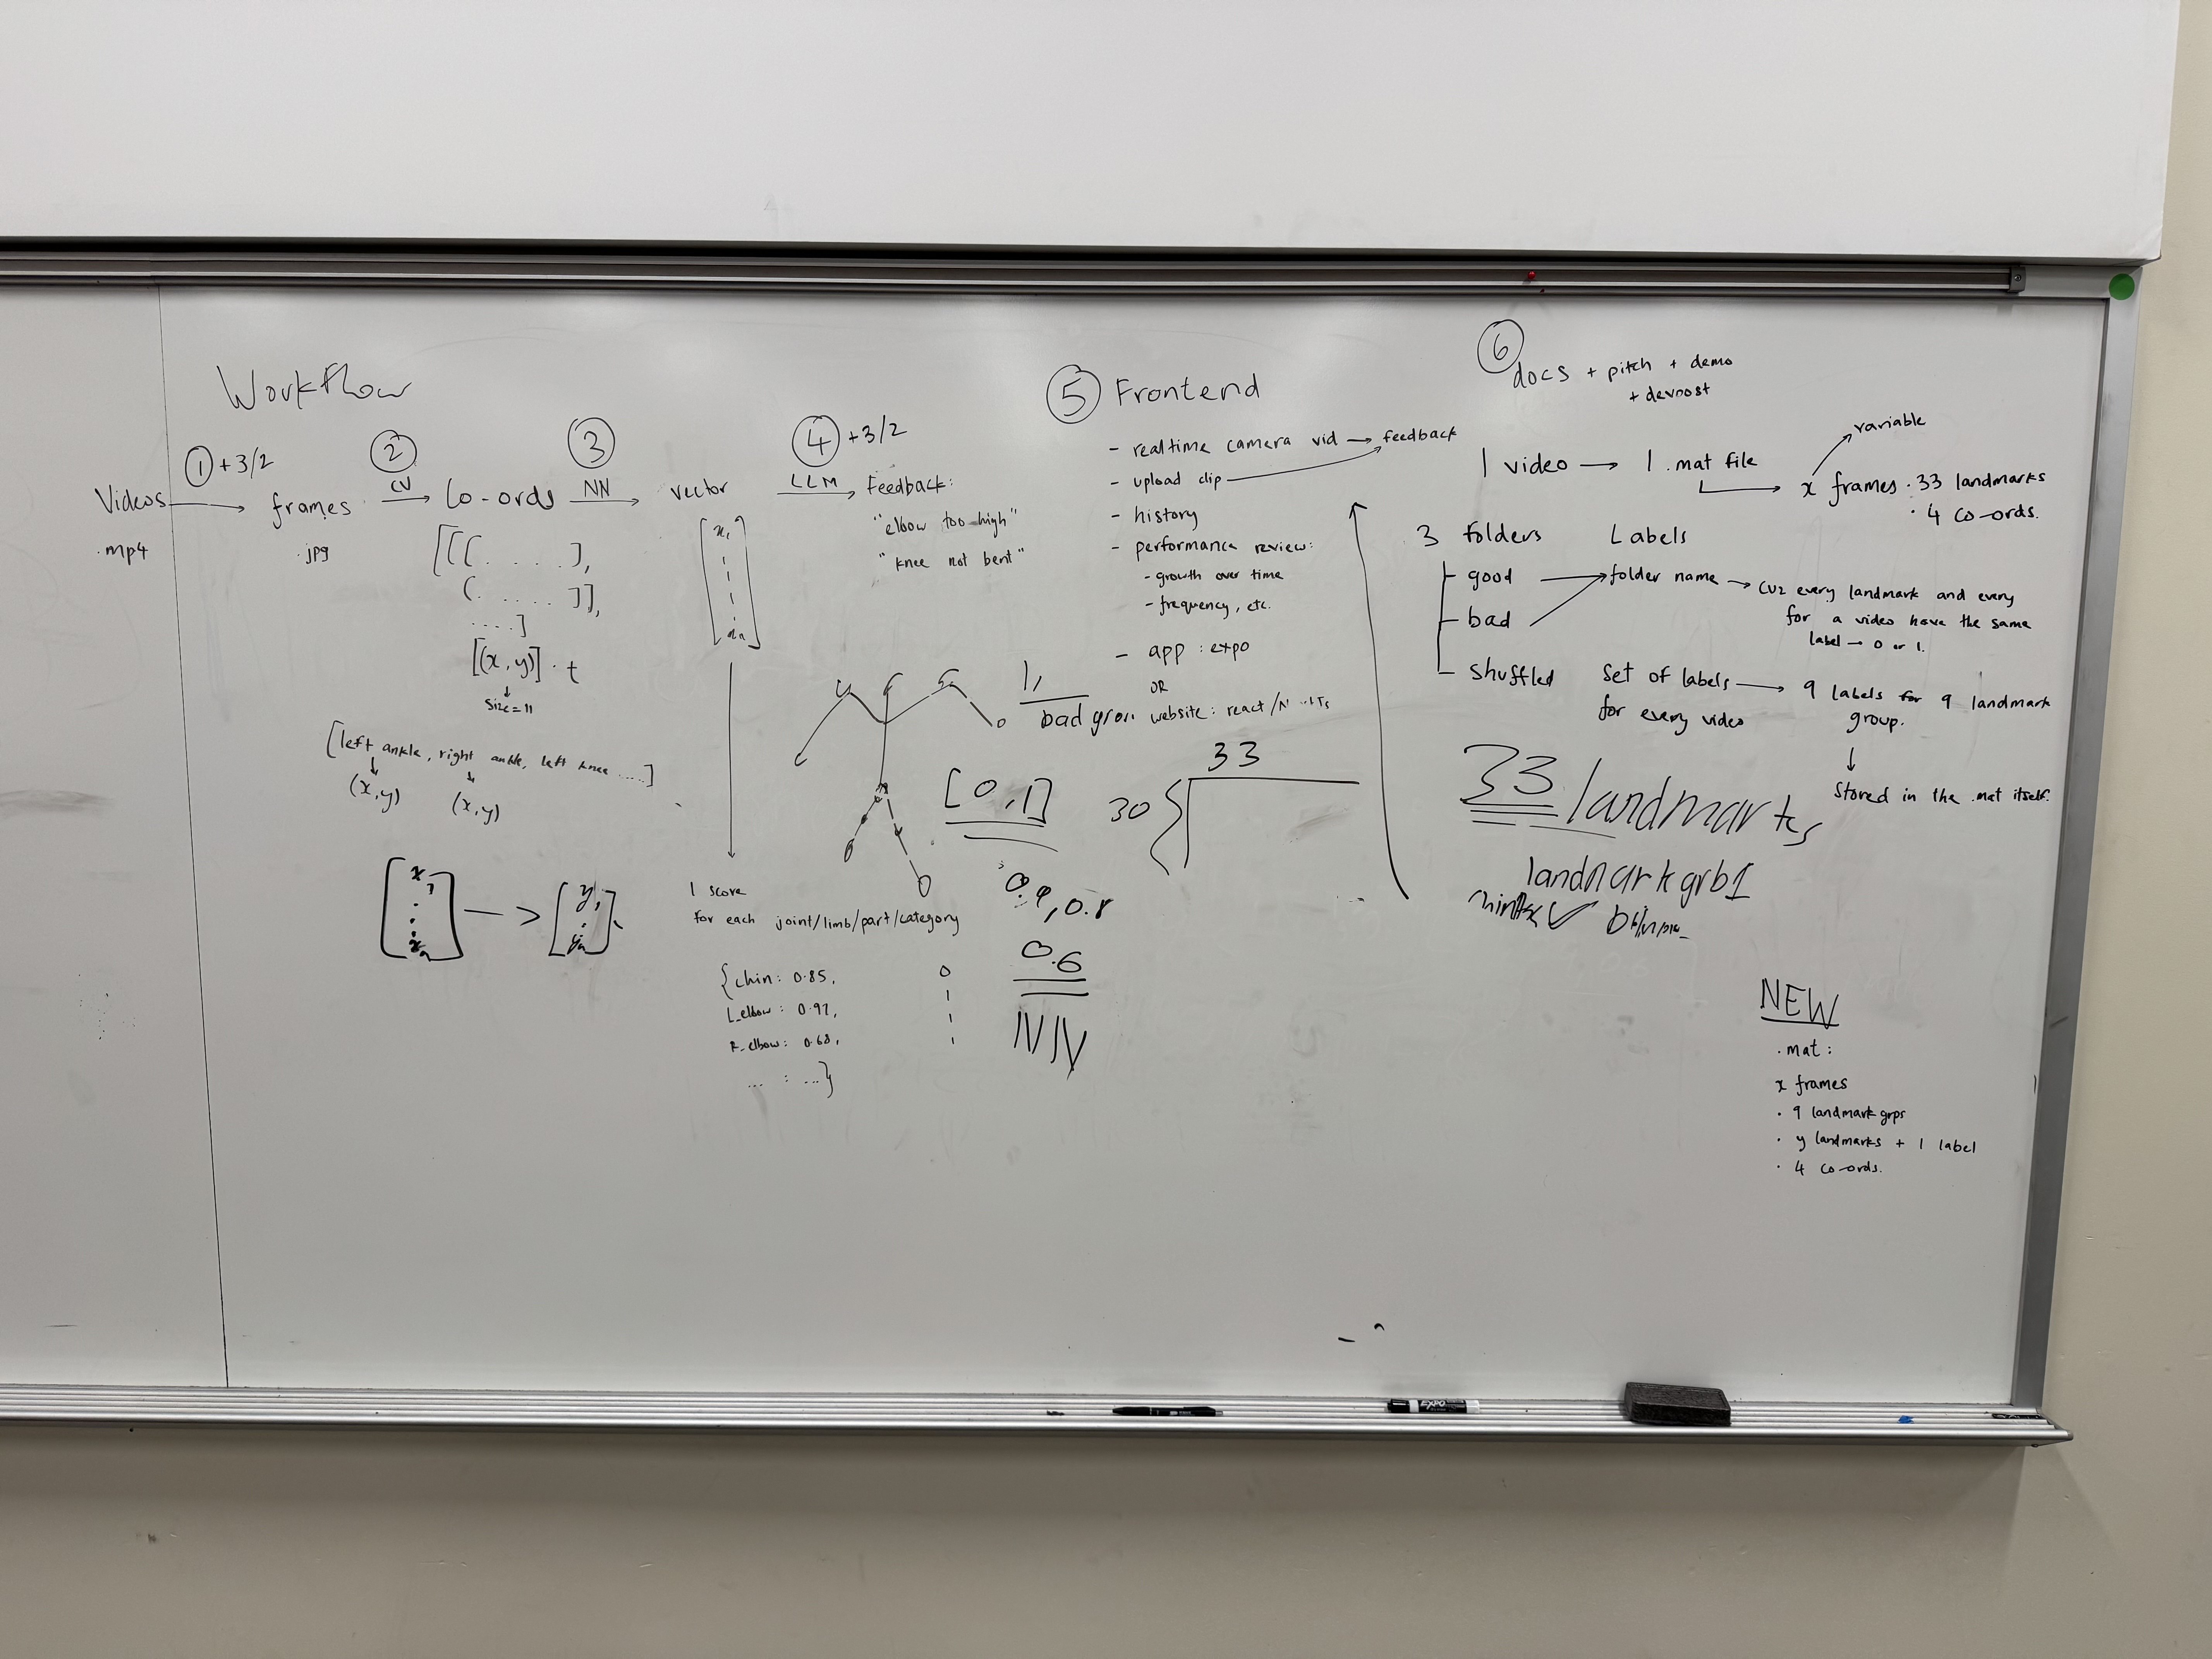 Workflow
① +3/2
②
③
④ +3/2
Videos → frames CV → Co-ords NN → vector LLM → Feedback:
.mp4
.jpg
"elbow too high"
"knee not bent"
[[[ . . . . ],
[ . . . . ]],
. . . . ]
[(x,y)] . t
size = 11
[left ankle, right ankle, left knee .....]
(x,y) (x,y)
[x1
.
.
xn] —> [y1
.
yn]
[x1
xn]
1 score
for each joint/limb/part/category
{chin: 0.85,
L_elbow: 0.92,
R_elbow: 0.68,
... : ...}
0
1
1
1
1,
[0,1]
0.6
⑤ Frontend
- realtime camera vid → feedback
- upload clip
- history
- performance review:
- growth over time
- frequency, etc.
- app : expo
OR
website: react/
33
30
⑥
docs + pitch + demo
+ devpost
1 video → 1 .mat file
variable
x frames . 33 landmarks
. 4 co-ords.
3 folders Labels
good → folder name → cuz every landmark and every
bad
for a video have the same
label — 0 or 1.
shuffled Set of labels → 9 labels for 9 landmark
for every video
group.
Stored in the .mat itself.
33 landmarks
NEW
.mat :
x frames
. 9 landmark grps
. y landmarks + 1 label
. 4 co-ords.